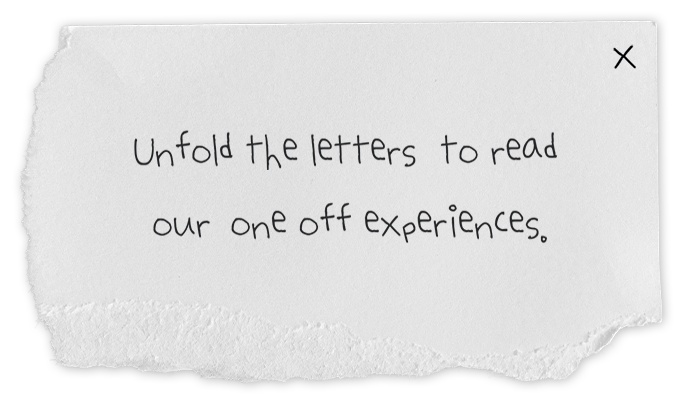 Unfold the letters to read
our one off experiences.